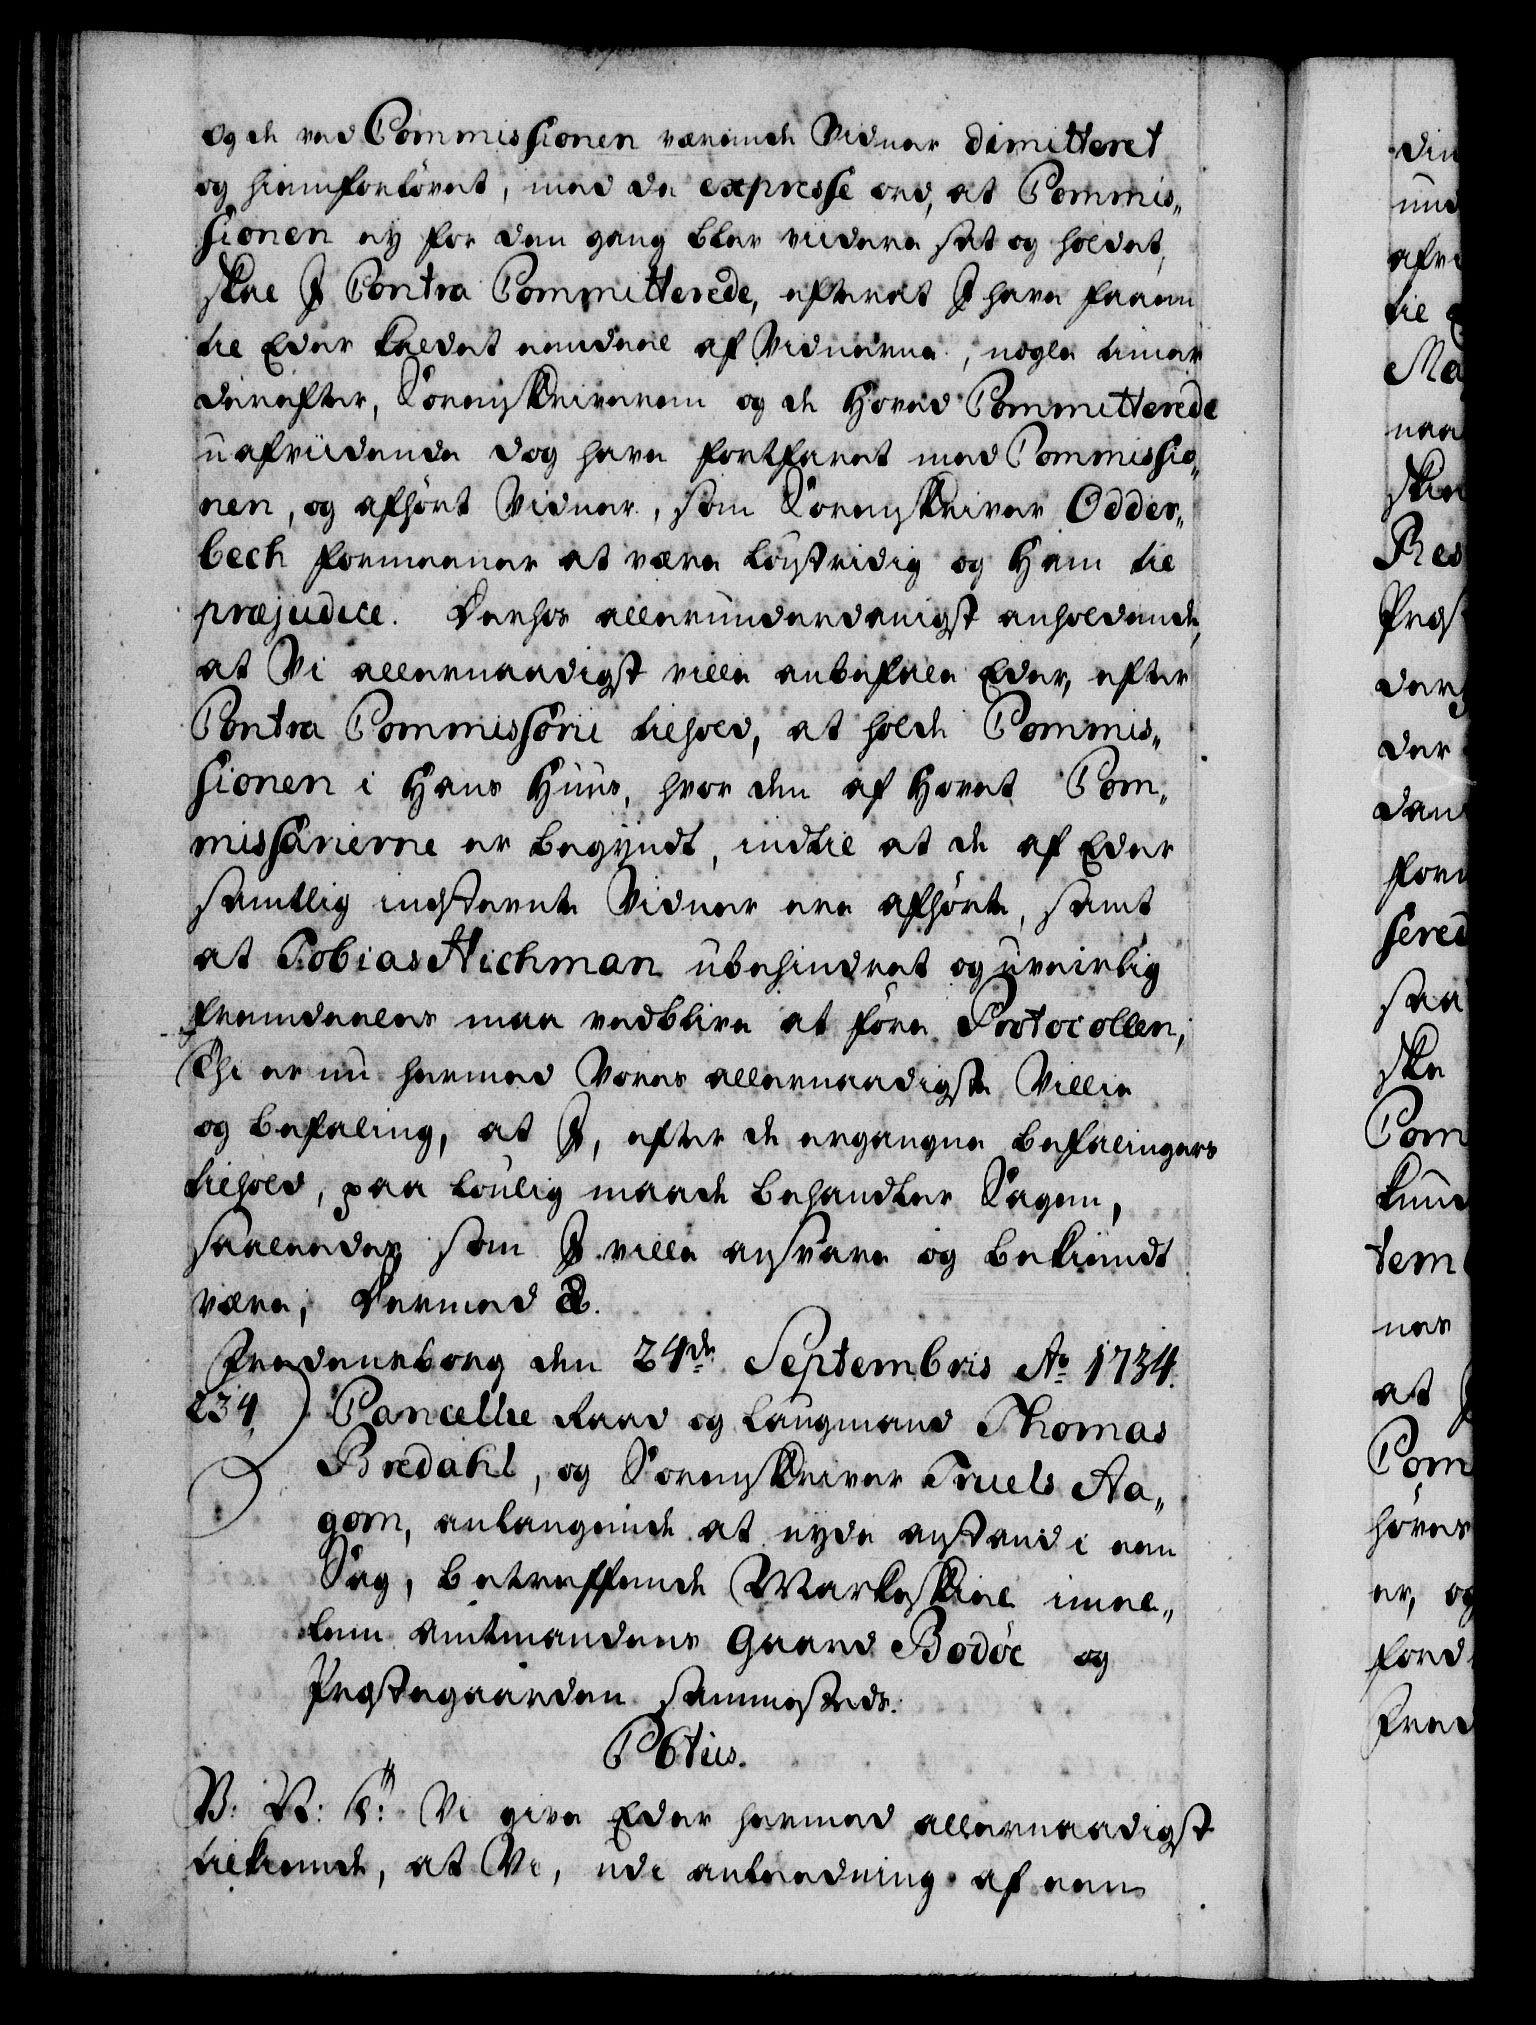 og de ved Commissionen værende Vidner dimitteret
og hiemforlovet, med de expresse ord, at Commis„
sionen ey for den gang blev viidere sat og holdet,
skal I Contra Committerede, efterat I have faaen
til Eder kaldet eendeel af Vidnerne, nogle timer
derefter, Sorenskriveren og de Hoved Committerede
uafvidende dog have fortfaret med Commissio„
nen, og afhört Vidner, som Sorenskriver Odder„
bech formeener at være lovstridig og Ham til
præjudice. Derhos allerunderdanigst anholdende,
at Vi allernaadigst ville anbefale Eder, efter
Contra Commissorii tilhold, at holde Commis„
sionen i Hans Huus, hvor den af Hovet Com„
missarierne er begyndt, indtil at de af Eder
samtlig indstevnte Vidner ere afhörte, samt
at Tobias Hichman ubehindret og uveirlig
fremdeeles maa vedblive at före Protocollen;
Thi er nu hermed Vores allernaadigste Villie
og befaling, at I, efter de ergangne befalingers
tilhold, paa lovlig maade behandler Sagen,
saaleedes som I ville ansvare og bekiendt
være; Dermed &.
Fredensborg den 24de Septembris Ao 1734.
234) Cancellie Raad og Laugmand Thomas
Bredahl, og Sorenskriver Truels Aa„
gom, anlangende at nyde anstand i een
Sag, betreffende Markeskiel imel„
lem Amtmandens Gaard Bodöe og
Præstegaarden sammesteds.
C 6tus.
V: V: G: Vi give Eder hermed allernaadigst
tilkiende, at Vi, udi anleedning af een